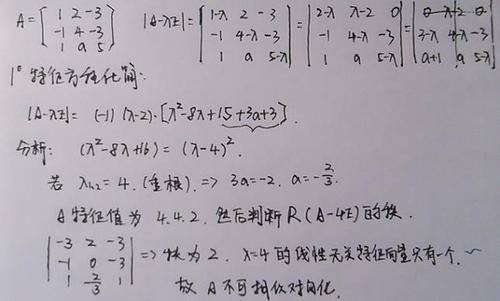 A = [1 2 -3; -1 4 -3; 1 a 5] |A-λE| = |1-λ 2 -3; -1 4-λ -3; 1 a 5-λ| = |2-λ λ-2 0; -1 4-λ -3; 1 a 5-λ| = |0 λ-2 0; 3-λ 4-λ -3; a+1 a 5-λ|
1° 特征方程化简:
|A-λE| = (-1) (λ-2)·[λ²-8λ+15+3a+3].
分析: (λ²-8λ+16) = (λ-4)².
若 λ₁,₂ = 4. (重根). => 3a=-2. a=-2/3.
A 特征值为 4.4.2. 然后判断 R(A-4E)的秩.
|-3 2 -3; -1 0 -3; 1 2/3 1| => 秩为 2. λ=4 的线性无关特征向量只有一个.
故 A 不可相似对角化.